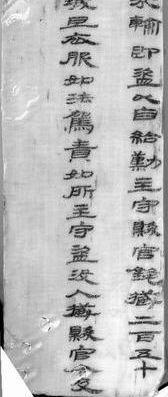 輸即盜以自給勤主守縣官錢臧二百五十
城旦衣服如法駕責如所主守盜沒入臧縣官令